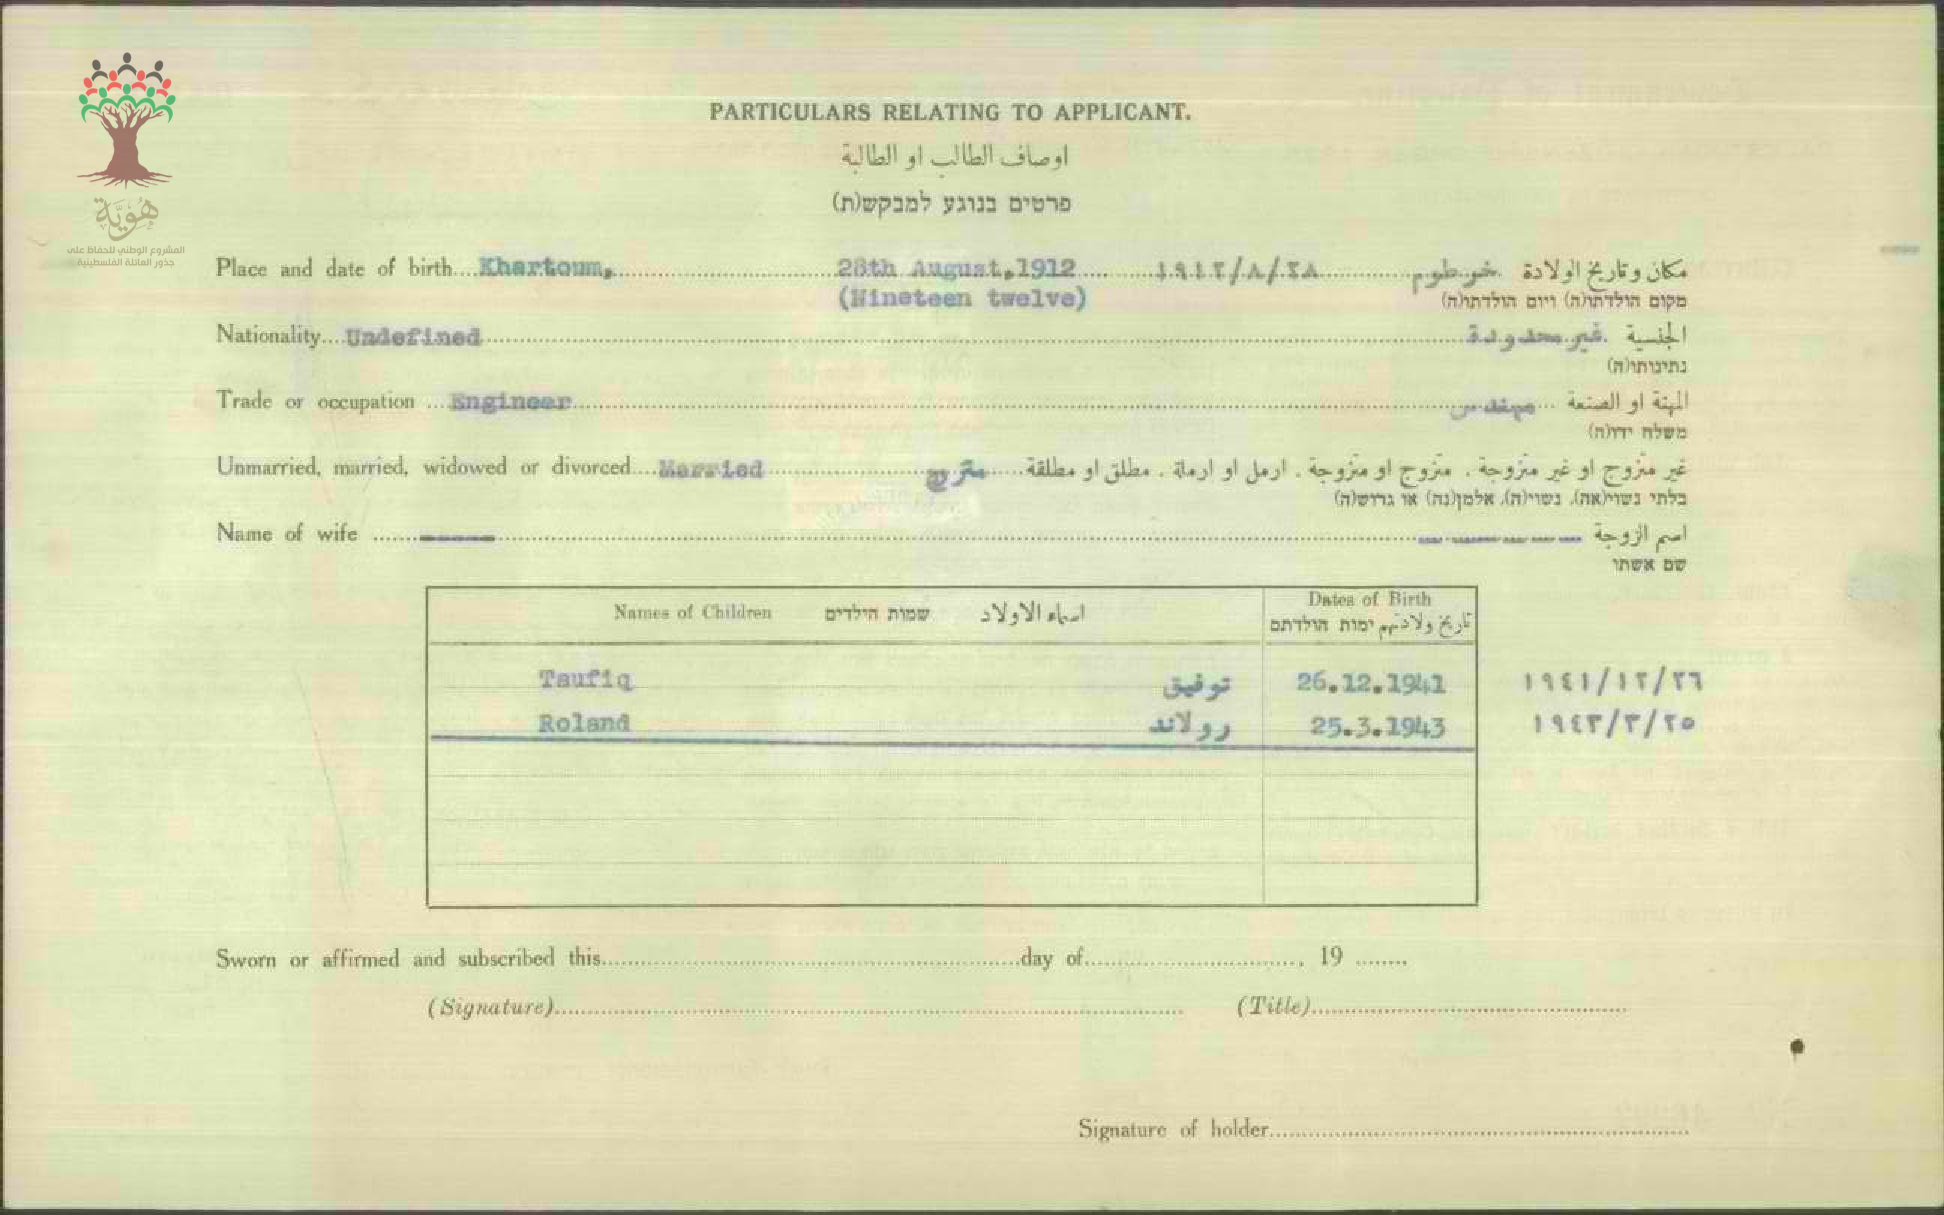 هُويّة
المشروع الوطني للحفاظ على
جذور العائلة الفلسطينية
PARTICULARS RELATING TO APPLICANT.
اوصاف الطالب او الطالبة
פרטים בנוגע למבקש(ת)
Place and date of birth....Khartoum, 28th August,1912 ١٩١٢/٨/٢٨ خرطوم مكان وتاريخ الولادة
(Nineteen twelve) מקום הולדתו(ה) ויום הולדתו(ה)
Nationality....Undefined غير محدودة الجنسية
נתינותו(ה)
Trade or occupation ...Engineer مهندس المهنة او الصنعة
משלח ידו(ה)
Unmarried, married, widowed or divorced....Married متزوج غير متزوج او غير متزوجة . متزوج او متزوجة . ارمل او ارملة . مطلق او مطلقة
בלתי נשוי(אה), נשוי(ה), אלמן(נה) או גרוש(ה)
Name of wife ------ اسم الزوجة
שם אשתו
Names of Children שמות הילדים اسماء الاولاد Dates of Birth
تاريخ ولادتهم ימות הולדתם
Taufiq توفيق 26.12.1941 ١٩٤١/١٢/٢٦
Roland رولاند 25.3.1943 ١٩٤٣/٣/٢٥
Sworn or affirmed and subscribed this..........day of.........., 19 ........
(Signature).......... (Title)..........
Signature of holder..........